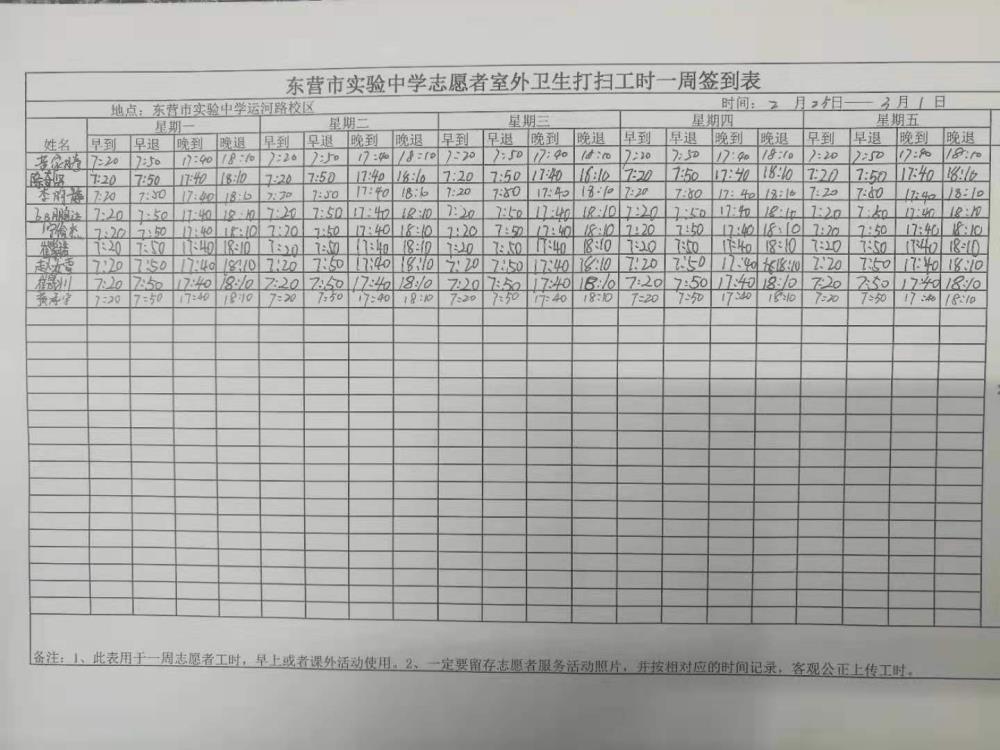 东营市实验中学志愿者室外卫生打扫工时一周签到表
地点：东营市实验中学运河路校区 时间：2 月25日——3月1日
星期一 星期二 星期三 星期四 星期五
姓名 早到 早退 晚到 晚退 早到 早退 晚到 晚退 早到 早退 晚到 晚退 早到 早退 晚到 晚退 早到 早退 晚到 晚退
7:20 7:50 17:40 18:10 7:20 7:50 17:40 18:10 7:20 7:50 17:40 18:10 7:20 7:50 17:40 18:10 7:20 7:50 17:40 18:10
7:20 7:50 17:40 18:10 7:20 7:50 17:40 18:10 7:20 7:50 17:40 18:10 7:20 7:50 17:40 18:10 7:20 7:50 17:40 18:10
7:20 7:50 17:40 18:10 7:20 7:50 17:40 18:10 7:20 7:50 17:40 18:10 7:20 7:50 17:40 18:10 7:20 7:50 17:40 18:10
7:20 7:50 17:40 18:10 7:20 7:50 17:40 18:10 7:20 7:50 17:40 18:10 7:20 7:50 17:40 18:10 7:20 7:50 17:40 18:10
7:20 7:50 17:40 18:10 7:20 7:50 17:40 18:10 7:20 7:50 17:40 18:10 7:20 7:50 17:40 18:10 7:20 7:50 17:40 18:10
7:20 7:50 17:40 18:10 7:20 7:50 17:40 18:10 7:20 7:50 17:40 18:10 7:20 7:50 17:40 18:10 7:20 7:50 17:40 18:10
7:20 7:50 17:40 18:10 7:20 7:50 17:40 18:10 7:20 7:50 17:40 18:10 7:20 7:50 17:40 18:10 7:20 7:50 17:40 18:10
7:20 7:50 17:40 18:10 7:20 7:50 17:40 18:10 7:20 7:50 17:40 18:10 7:20 7:50 17:40 18:10 7:20 7:50 17:40 18:10
7:20 7:50 17:40 18:10 7:20 7:50 17:40 18:10 7:20 7:50 17:40 18:10 7:20 7:50 17:40 18:10 7:20 7:50 17:40 18:10
备注：1、此表用于一周志愿者工时，早上或者课外活动使用。2、一定要留存志愿者服务活动照片，并按相对应的时间记录，客观公正上传工时。